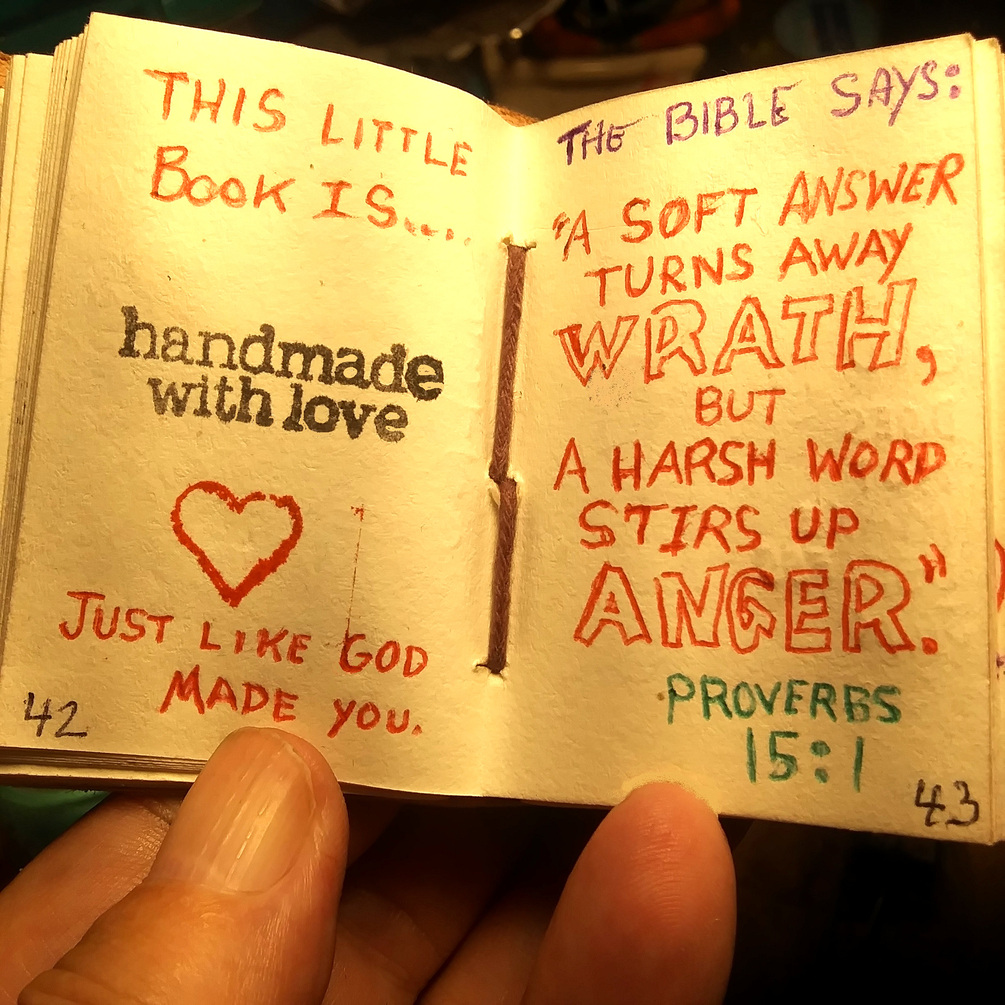 THIS LITTLE
BOOK IS....
handmade
with love
JUST LIKE GOD
MADE YOU.
42
THE BIBLE SAYS:
"A SOFT ANSWER
TURNS AWAY
WRATH,
BUT
A HARSH WORD
STIRS UP
ANGER."
PROVERBS
15:1
43